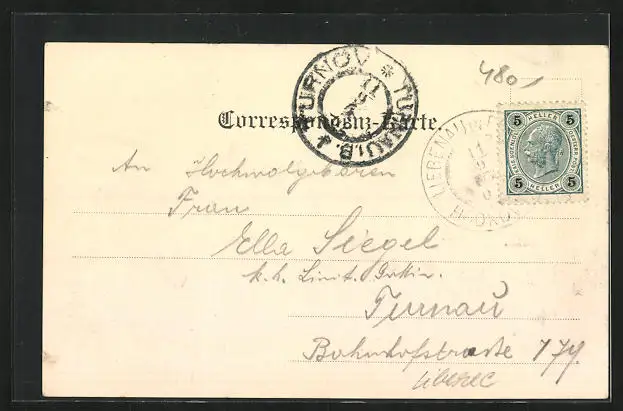 480
TURNOV * TURNAU I.B.
11
Correspondenz-Karte.
LIEBENAU
11
5 HELLER 5
5 HELLER 5
An Hochwolgeboren
Frau
Ella Siegel
k. k.
Turnau
Bahnhofstrasse
Liberec